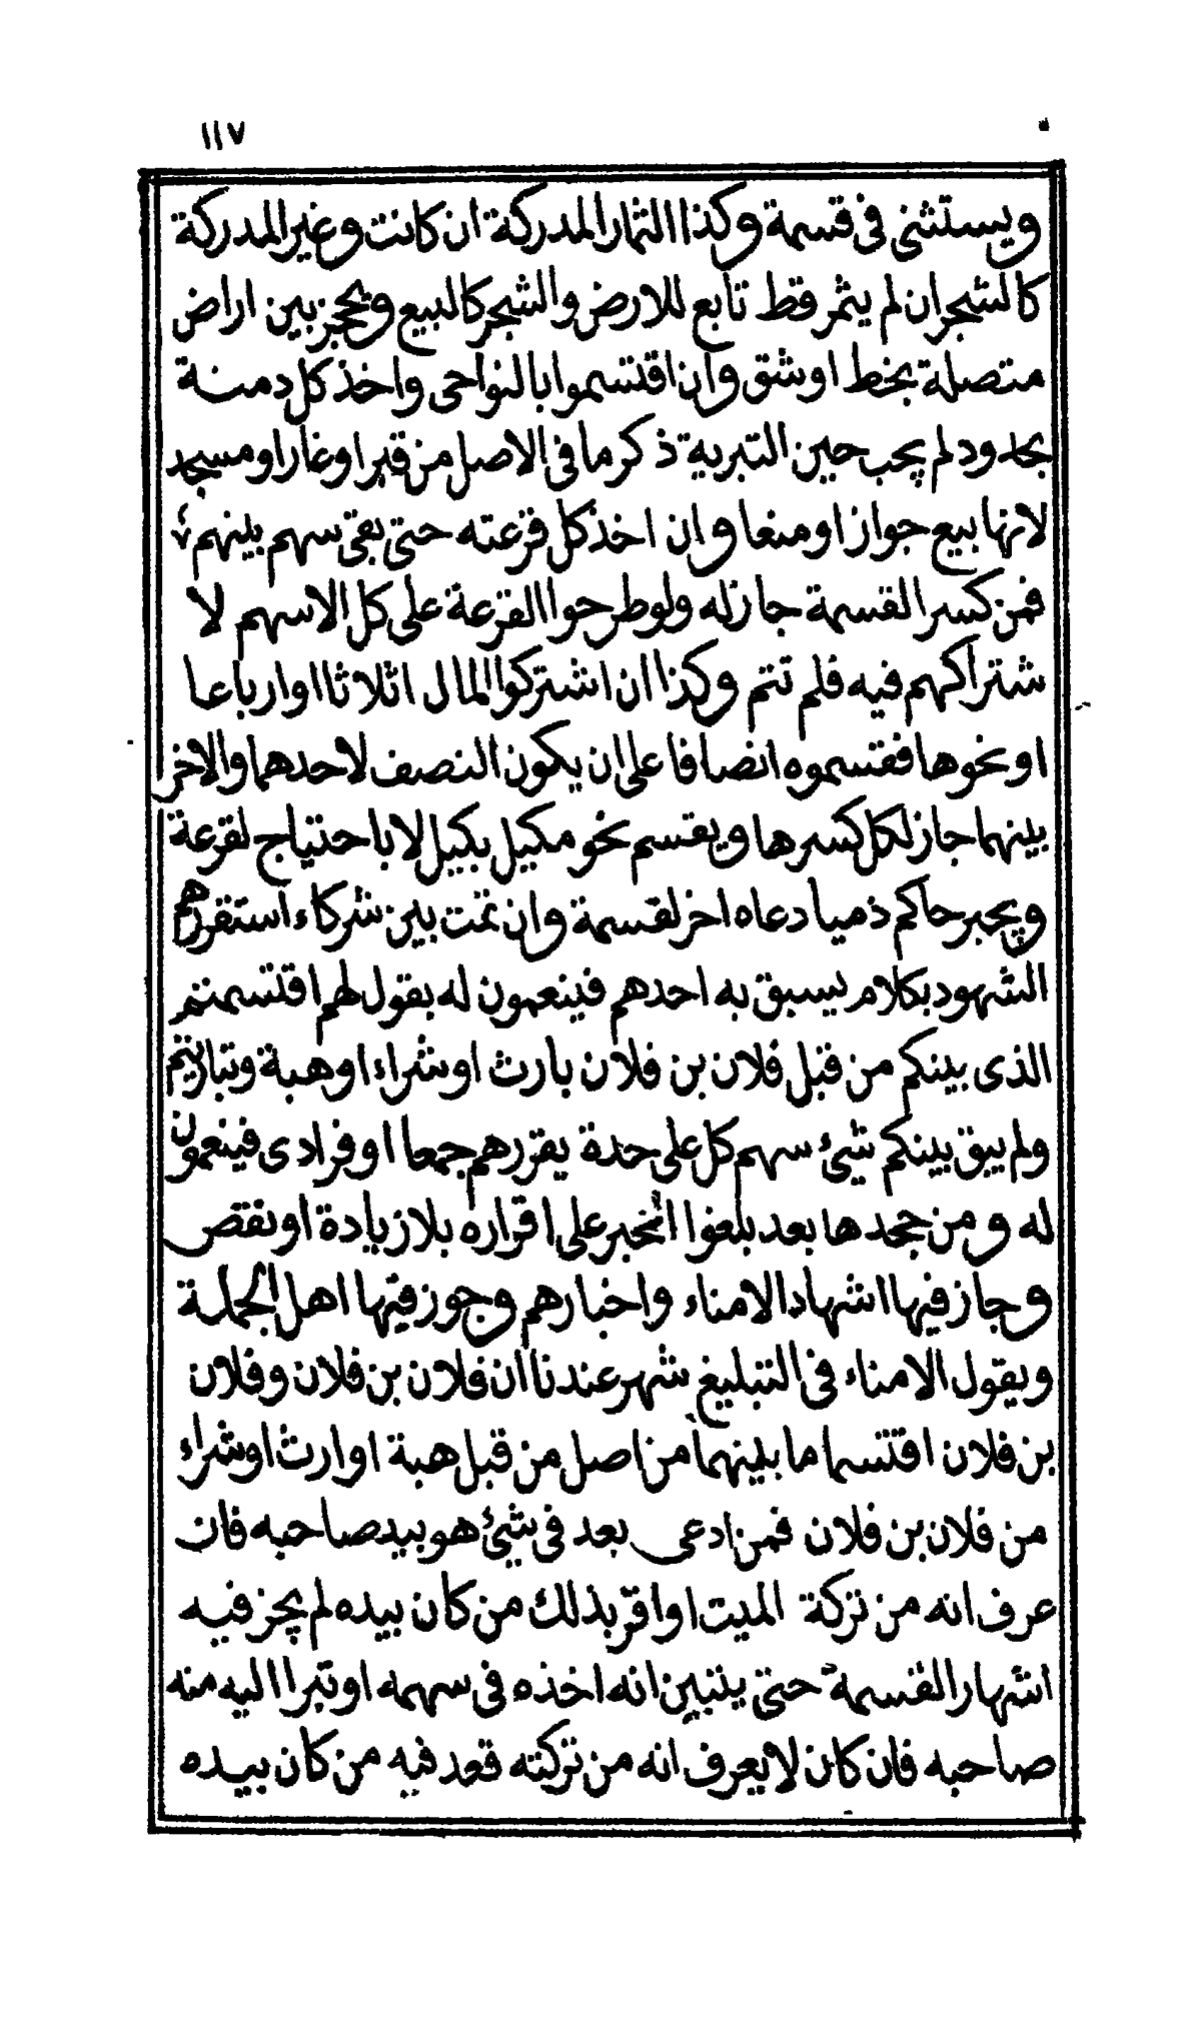 ١١٧
ويستثنى في قسمة وكذا الثمار المدركة ان كانت وغير المدركة
كالشجر ان لم يثمر قط تابع للارض والشجر كالبيع ويحجز بين اراض
متصلة بخط اوشق وان اقتسموا بالنواحى واخذ كل دمنة
بحدود لم يجب حين التبرية ذكر ما فى الاصل من قبر اوغار او مسجد
لانها بيع جواز او منعا وان اخذ كل قرعته حتى بقى سهم بينهم
فمن كسر القسمة جاز له ولوطرحوا القرعة على كل الاسهم لا
شتراكهم فيه فلم تتم وكذا ان اشتركوا المال اثلاثا او ارباعا
او نحوها فقسموه انصافا على ان يكون النصف لاحدهما والاخر
بينهما جاز لكل كسرها ويقسم نحو مكيل بكيل لا باحتياج لقرعة
ويجبر حاكم ذميا دعاه اخر لقسمة وان تمت بين شركاء استقررهم
الشهود بكلام يسبق به احدهم فينعمون له بقول لهم اقتسمتم
الذى بينكم من قبل فلان بن فلان بارث اوشراء اوهبة وتباريتم
ولم يبق بينكم شئ سهم كل على حدة يقررهم جمعا او فرادى فينعمون
له ومن جحدها بعد بلغوا الخبر على اقراره بلا زيادة اونقص
وجاز فيها اشهاد الامناء واخبارهم وجوز فيها اهل الجملة
ويقول الامناء فى التبليغ شهر عندنا ان فلان بن فلان وفلان
بن فلان اقتسما ما بينهما من اصل من قبل هبة او ارث اوشراء
من فلان بن فلان فمن ادعى بعد فى شئ هو بيد صاحبه فان
عرف انه من تركة الميت او اقر بذلك من كان بيده لم يجز فيه
اشهار القسمة حتى يتبين انه اخذه فى سهمه اوتبرا اليه منه
صاحبه فان كان لا يعرف انه من تركته قعد فيه من كان بيده